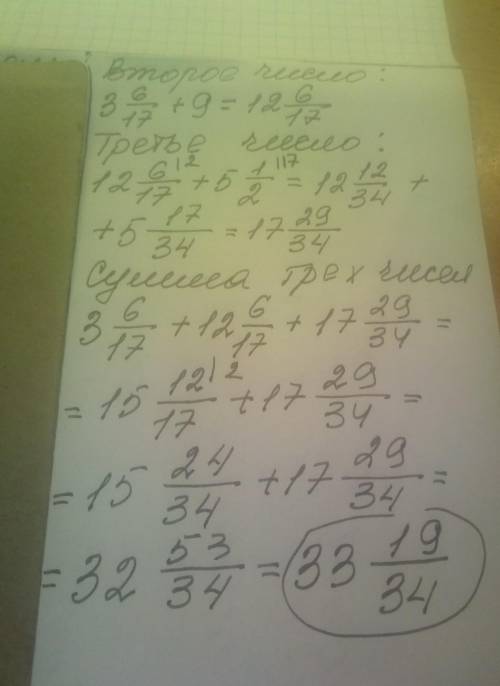 Второе число:
3 6/17 + 9 = 12 6/17
Третье число:
12 6/17 |2 + 5 1/2 |17 = 12 12/34 +
+ 5 17/34 = 17 29/34
Сумма трех чисел
3 6/17 + 12 6/17 + 17 29/34 =
= 15 12/17 |2 + 17 29/34 =
= 15 24/34 + 17 29/34 =
= 32 53/34 = 33 19/34